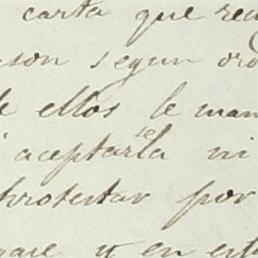 carta que rec
son segun ord
e ellos le man
aceptarla se ni
protestar por
gare y en est